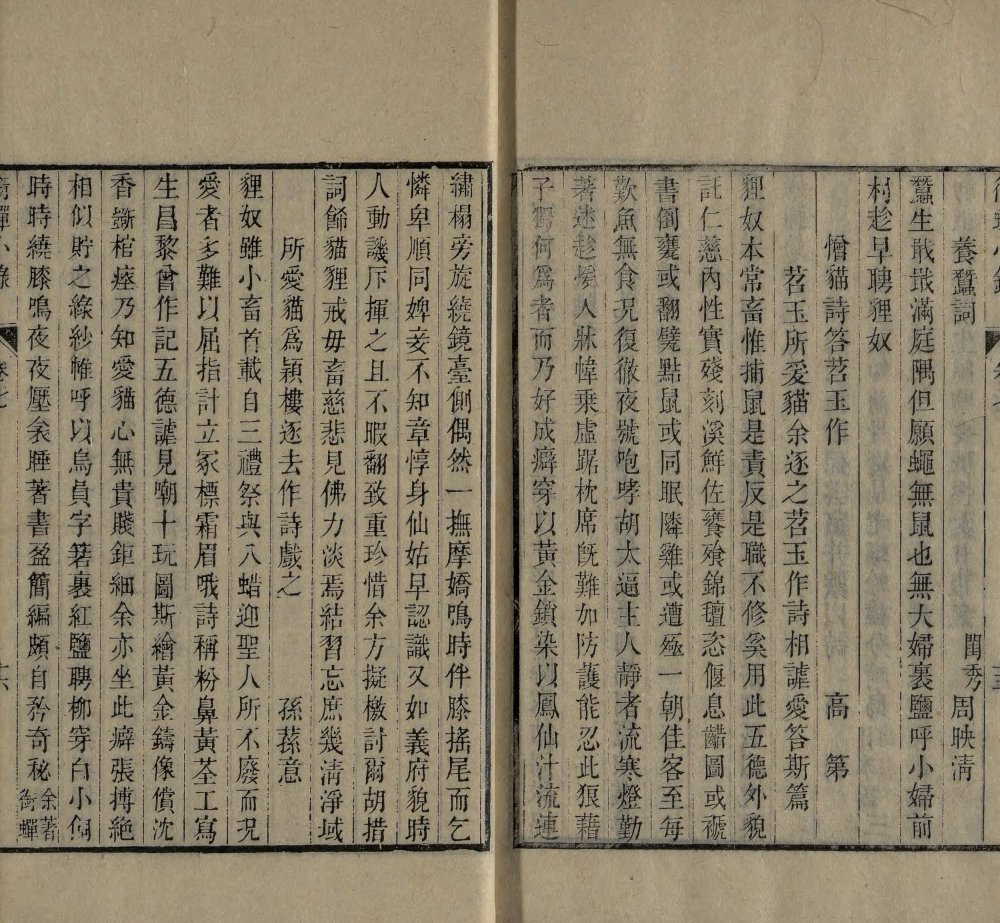 養蠶詞
閨秀周映清
蠶生戢戢滿庭隅但願蠅無鼠也無大婦裹鹽呼小婦前
村趁早聘貍奴
憎貓詩答苕玉作
高第
苕玉所愛貓余逐之苕玉作詩相謔爰答斯篇
貍奴本常畜惟捕鼠是責反是職不修奚用此五德外貌
託仁慈內性實殘刻溪鮮佐饔飧錦氊恣偃息齰圖或褫
書倒甕或翻甓點鼠或同眠隣雞或遭殛一朝佳客至每
歎魚無食況復徹夜號咆哮胡太逼主人靜者流寒燈勤
著述趁煖入牀幃乘虛踞枕席旣難如防護能忍此狼藉
子獨何爲者而乃好成癖穿以黃金鎖染以鳳仙汁流連
繡榻旁旋繞鏡臺側偶然一撫摩嬌鳴時伴膝搖尾而乞
憐卑順同婢妾不知章惇身仙姑早認識又如義府貌時
人動譏斥揮之且不暇翻致重珍惜余方擬檄討爾胡措
詞餙貓貍戒毋畜慈悲見佛力淡焉結習忘庶幾淸淨域
所愛貓爲穎樓逐去作詩戲之
孫蓀意
貍奴雖小畜首載自三禮祭與八蜡迎聖人所不廢而況
愛者多難以屈指計立冢標霜眉哦詩稱粉鼻黃荃工寫
生昌黎曾作記五德謔見嘲十玩圖斯繪黃金鑄像償沈
香斵棺瘞乃知愛貓心無貴賤鉅細余亦坐此癖張搏絶
相似貯之綠紗帷呼以烏員字箬裹紅鹽聘柳穿白小伺
時時繞膝鳴夜夜壓衾睡著書盈簡編頗自矜奇秘余著
銜蟬
銜蟬小錄
卷七